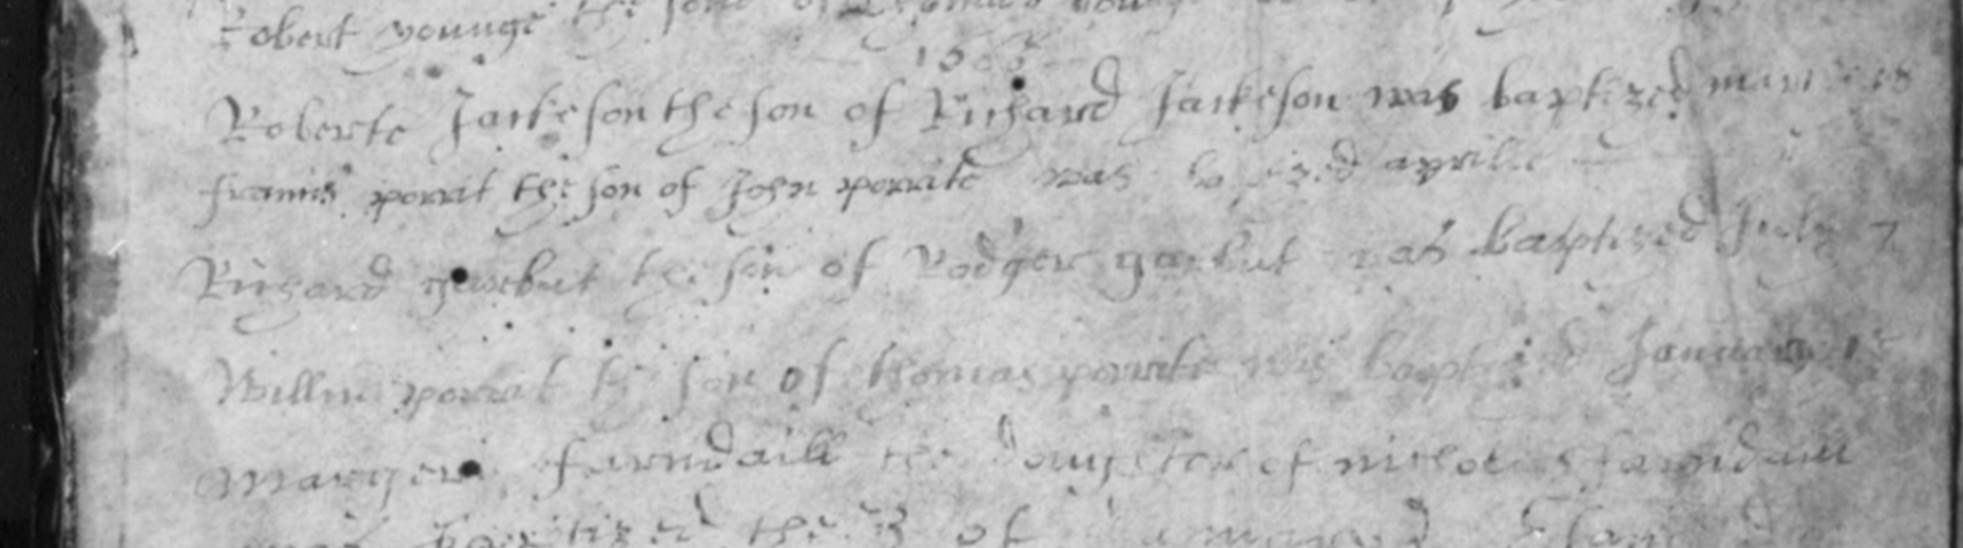 Robert younge the sone of Thomas
Roberte Jackeson the son of Richard Jackeson was baptized
francis porrit the son of John porrite was aprill
Richard garbut the son of Rodger garbut was baptized July 7
Willm porrat the son of thomas porrite was baptized January
Margere farndaill the doughter of nicholas farndaill
was baptized the 3 of